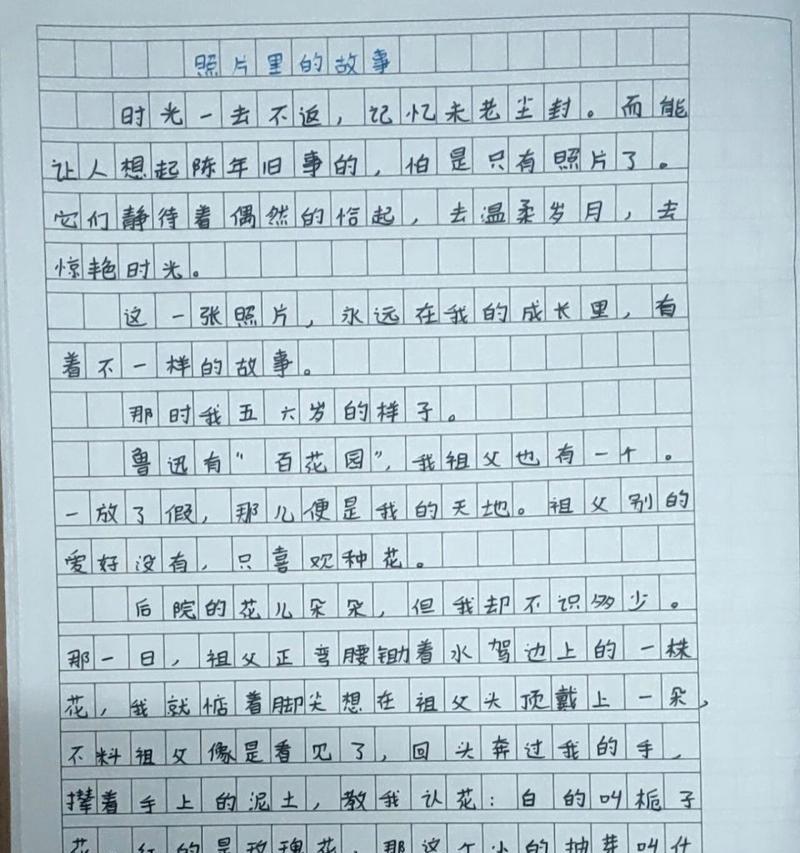 照片里的故事
时光一去不返，记忆未老尘封。而能
让人想起陈年旧事的，怕是只有照片了。
它们静待着偶然的拾起，去温柔岁月，去
惊艳时光。
这一张照片，永远在我的成长里，有
着不一样的故事。
那时我五六岁的样子。
鲁迅有“百花园”，我祖父也有一个。
一放了假，那儿便是我的天地。祖父别的
爱好没有，只喜欢种花。
后院的花儿朵朵，但我却不识多少。
那一日，祖父正弯腰锄着水驾边上的一株
花，我就惦着脚尖想在祖父头顶戴上一朵，
不料祖父像是看见了，回头奔过我的手，
着手上的泥土，教我认花：白的叫栀子
花，红的是玫瑰花，那这个小的抽芽叫什